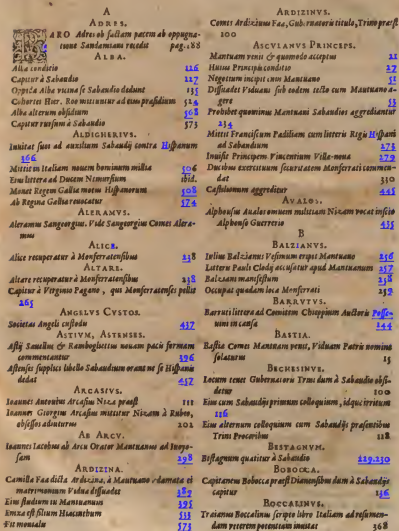 A
ADRES.
ARO Adres ob factam pacem ab oppugna-
tione Sandamiani recedit pag. 188
ALBA.
Alba conditio 126
Capitur à Sabaudo 127
Oppida Alba vicina se Sabaudo dedunt 135
Cohortes Hier. Roo mittuntur ad eius præsidium 524
Alba alterum obsidium 568
Capitur rursum à Sabaudo 573
ALDIGHERIVS.
Inuitat suos ad auxilium Sabaudi contra Hispanum
366
Mittit in Italiam nouem hominum millia 506
Eius littera ad Ducem Nemursium ibid.
Monet Regem Gallia motus Hispanorum 508
Ab Regina Gallia reuocatur 574
ALERAMVS.
Aleramus Sangeorgius. Vide Sangeorgius Comes Alera-
mus
ALICE.
Alice recuperatur à Monferratensibus 238
ALTARE.
Altare recuperatur à Monferratensibus 238
Capitur à Virginio Pagano, qui Monferratenses pellit
265
ANGELVS CVSTOS.
Societas Angeli custodis 437
ASTIVM, ASTENSES.
Astij Sauellus & Ramboglettus nouam pacis formam
commentantur 396
Astenses supplici libello Sabaudum orant ne se Hispanis
dedat 457
ARCASIVS.
Ioannes Antonius Arcasius Nicæ præest 111
Ioannes Giorgius Arcasius mittitur Nizam à Rubeo,
obsessos adiuturus 202
AB ARCV.
Ioannes Iacobus ab Arcu Orator Mantuanus ad Inoyo-
sam 298
ARDIZINA.
Camilla Faa dicta Ardizina, à Mantuano adamata et
matrimonium Vidua dissuadet 389
Eius studium in Mantuanum 395
Enixa est filium Hiacinthum 535
Fit monialis 573
ARDIZINVS.
Comes Ardizinus Faa, Gubernatoris titulo, Trino præest
100
ASCVLANVS PRINCEPS.
Mantuam venit & quomodo acceptus 21
Huius Principis conditio 27
Negotium incipit cum Mantuano 51
Dissuadet Viduam sub eodem tecto cum Mantuano a-
gere 53
Prohibet quominus Mantuani Sabaudos aggrediantur
234
Mittit Franciscum Padiliam cum litteris Regis Hispani
ad Sabaudum 273
Inuisit Principem Vincentium Villa-noua 279
Ducibus exercituum securitatem Monferrati commen-
dat 330
Castilionum aggreditur 445
AVALOS.
Alphonsus Aualos omnem militiam Nizam vocat inscio
Alphonso Guerrerio 435
B
BALZIANVS.
Iulius Balzianus Vesimum eripit Mantuano 256
Litteris Pauli Clodij accusatur apud Mantuanum 257
Balzianus mansuefactus 258
Occupat quædam loca Monferrati 259
BARRVTVS.
Barruti littera ad Comitem Chieppium Auctoris Posse-
uini in causa 244
BASTIA.
Bastia Comes Mantuam venit, Viduam Patris nomine
solaturus 15
BECHESINVS.
Locum tenet Gubernatoris Trini dum à Sabaudo obsi-
detur 100
Eius cum Sabaudijs primum colloquium, idque irritum
116
Eius alternum colloquium cum Sabaudijs præsentibus
Trini Proceribus 118
BESTAGNVM.
Bestagnum quatitur à Sabaudo 129.230
BOBOCCA.
Capitaneus Bobocca præest Dianensibus dum à Sabaudis
capitur 136
BOCCALINVS.
Traianus Boccalinus scripto libro Italiam ad resumen-
dam veterem potentiam inuitat 368